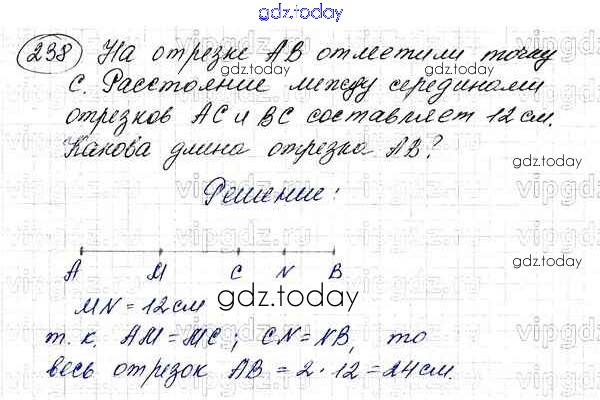 gdz.today
238 На отрезке AB отметили точку
C. Расстояние между серединами
отрезков AC и BC составляет 12 см.
Какова длина отрезка AB?
Решение:
A M C N B
MN = 12 см
т. к. AM = MC; CN = NB, то
весь отрезок AB = 2 · 12 = 24 см.
gdz.today
gdz.today
gdz.today
gdz.today
gdz.today
gdz.today